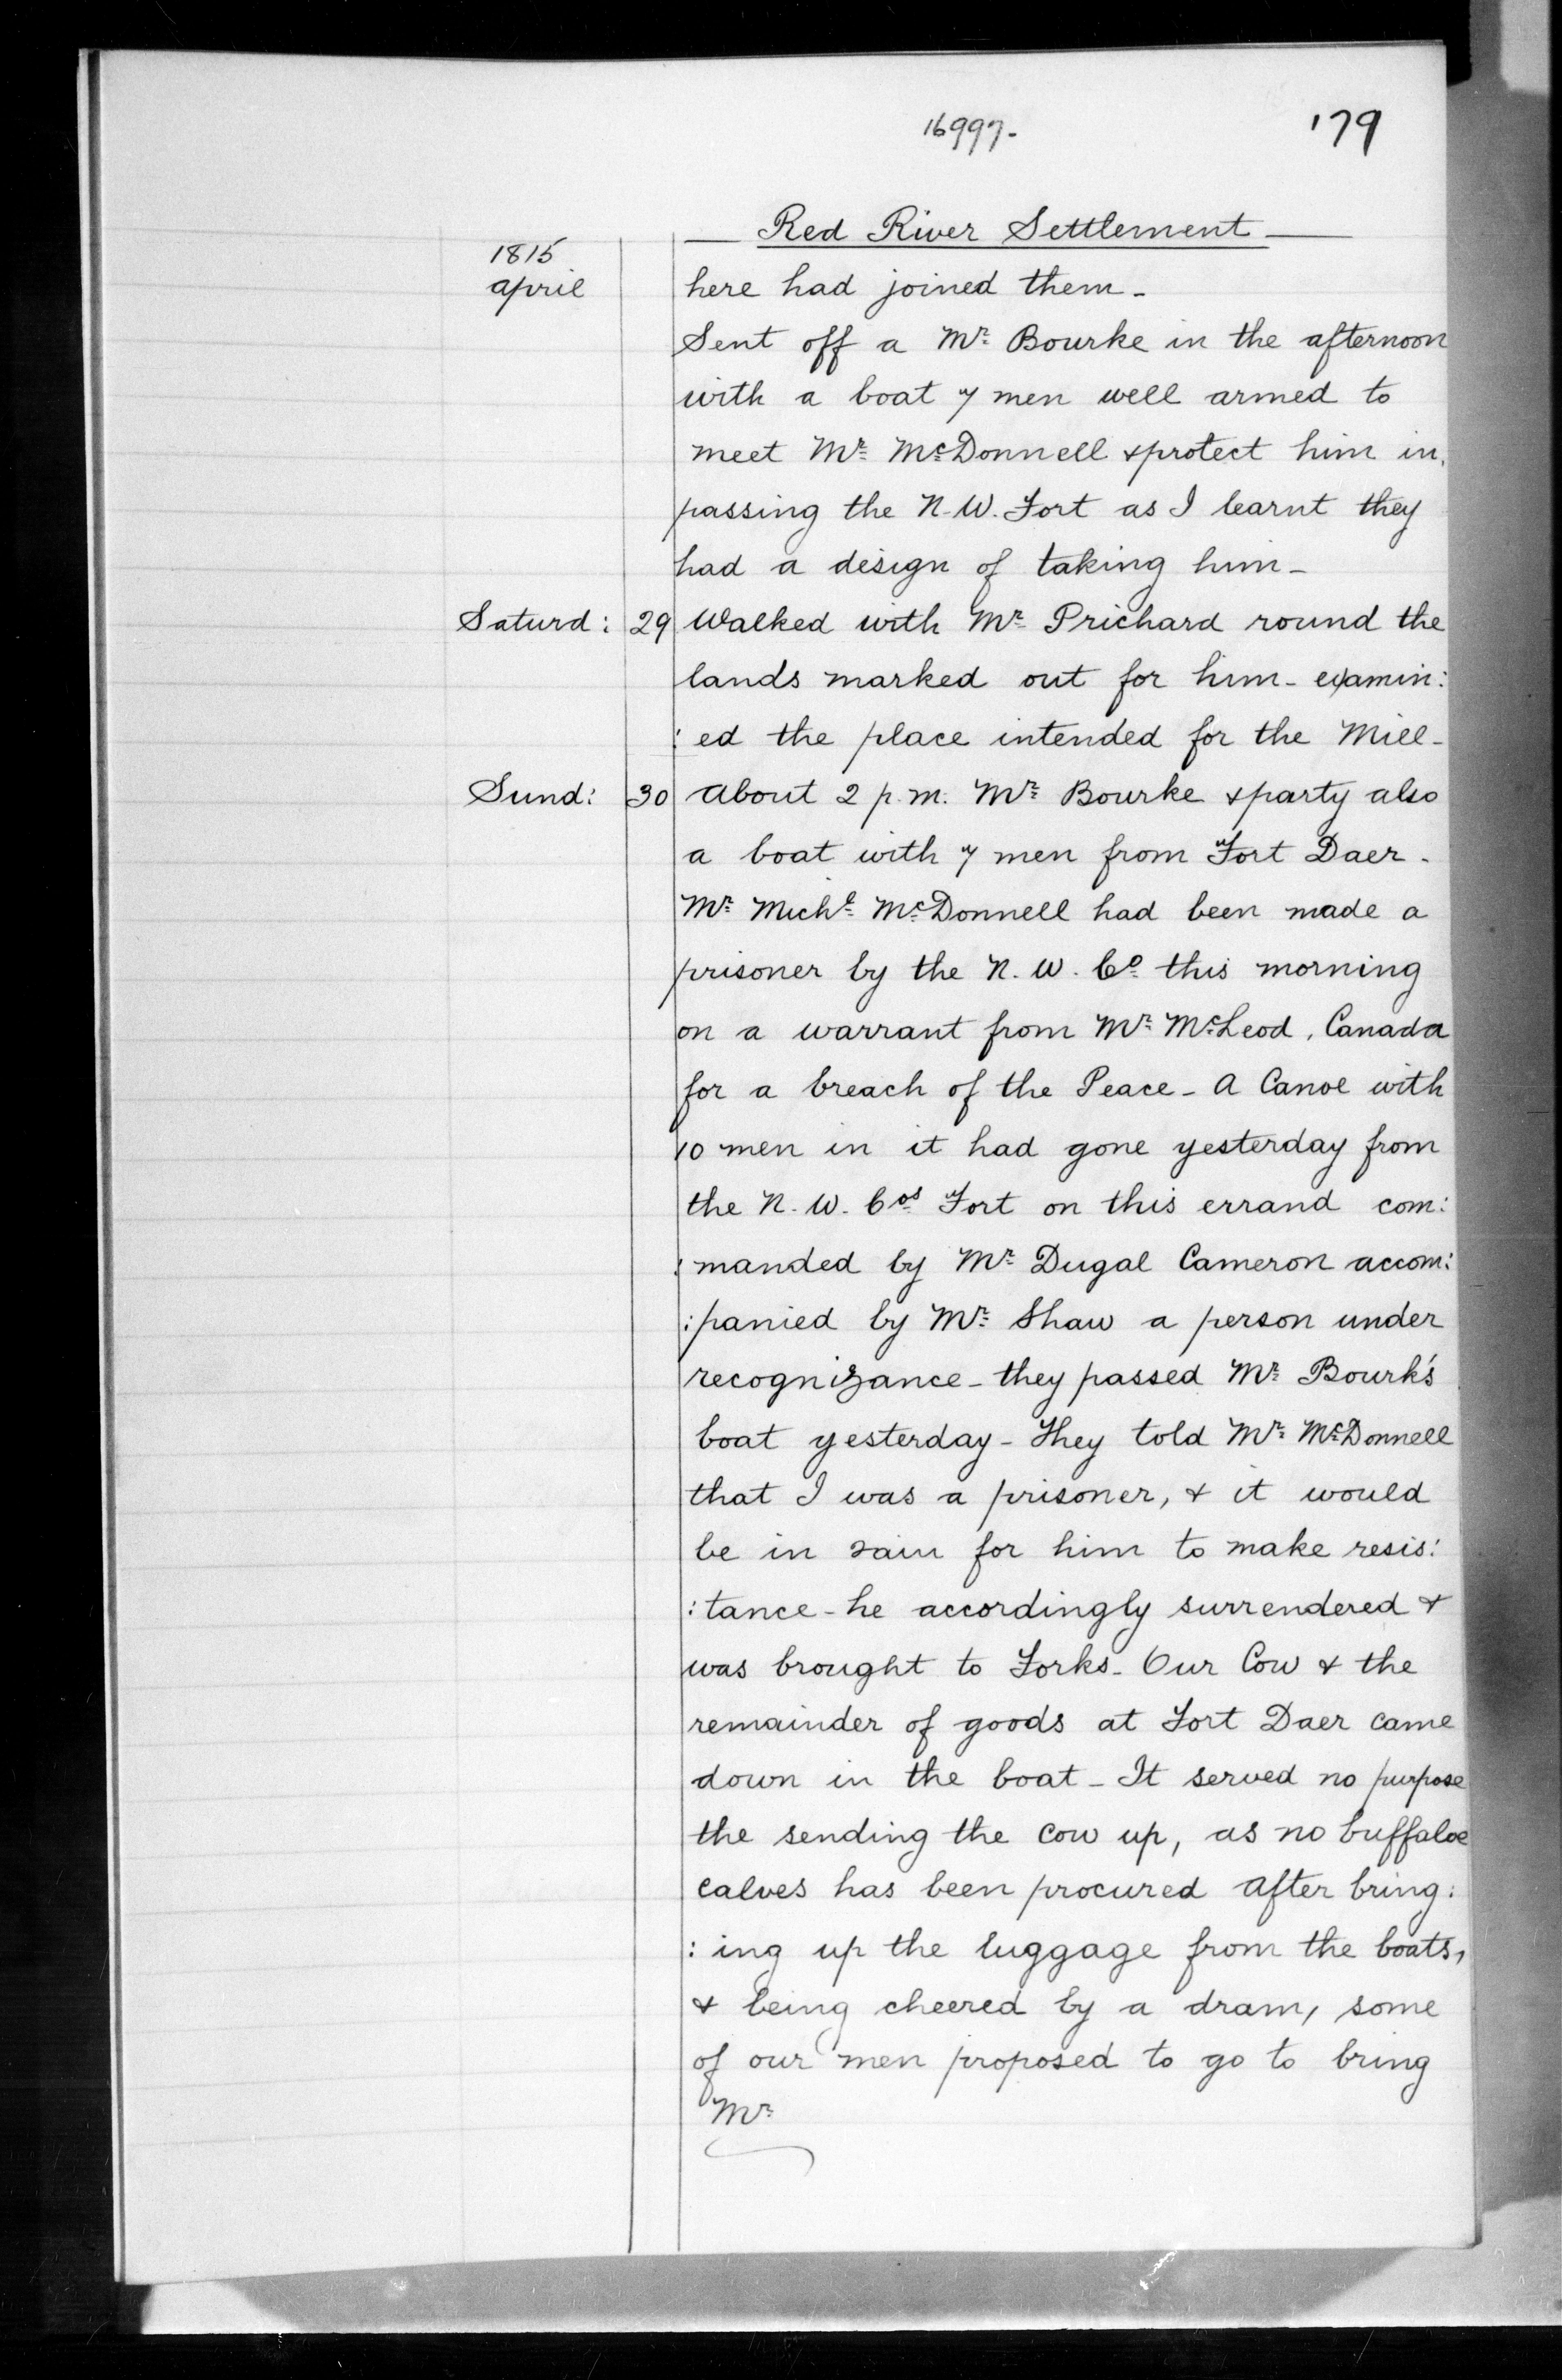 16997-
179
Red River Settlement
1815
April
here had joined them -
Sent off a Mr. Bourke in the afternoon
with a boat 7 men well armed to
meet Mr. McDonnell & protect him in
passing the N.W. Fort as I learnt they
had a design of taking him -
Saturd: 29 Walked with Mr. Prichard round the
lands marked out for him - examin:
: ed the place intended for the Mill -
Sund: 30 About 2 p.m. Mr. Bourke & party also
a boat with 7 men from Fort Daer -
Mr. Michl. McDonnell had been made a
prisoner by the N.W. Co. this morning
on a warrant from Mr. McLeod, Canada
for a breach of the Peace - A Canoe with
10 men in it had gone yesterday from
the N.W. Cos. Fort on this errand com:
: manded by Mr. Dugal Cameron accom:
: panied by Mr. Shaw a person under
recognizance - they passed Mr. Bourk's
boat yesterday - They told Mr. McDonnell
that I was a prisoner, & it would
be in vain for him to make resis:
: tance - he accordingly surrendered &
was brought to Forks - Our Cow & the
remainder of goods at Fort Daer came
down in the boat - It served no purpose
the sending the cow up, as no buffaloe
calves has been procured After bring:
: ing up the luggage from the boats,
& being cheered by a dram, some
of our men proposed to go to bring
Mr.